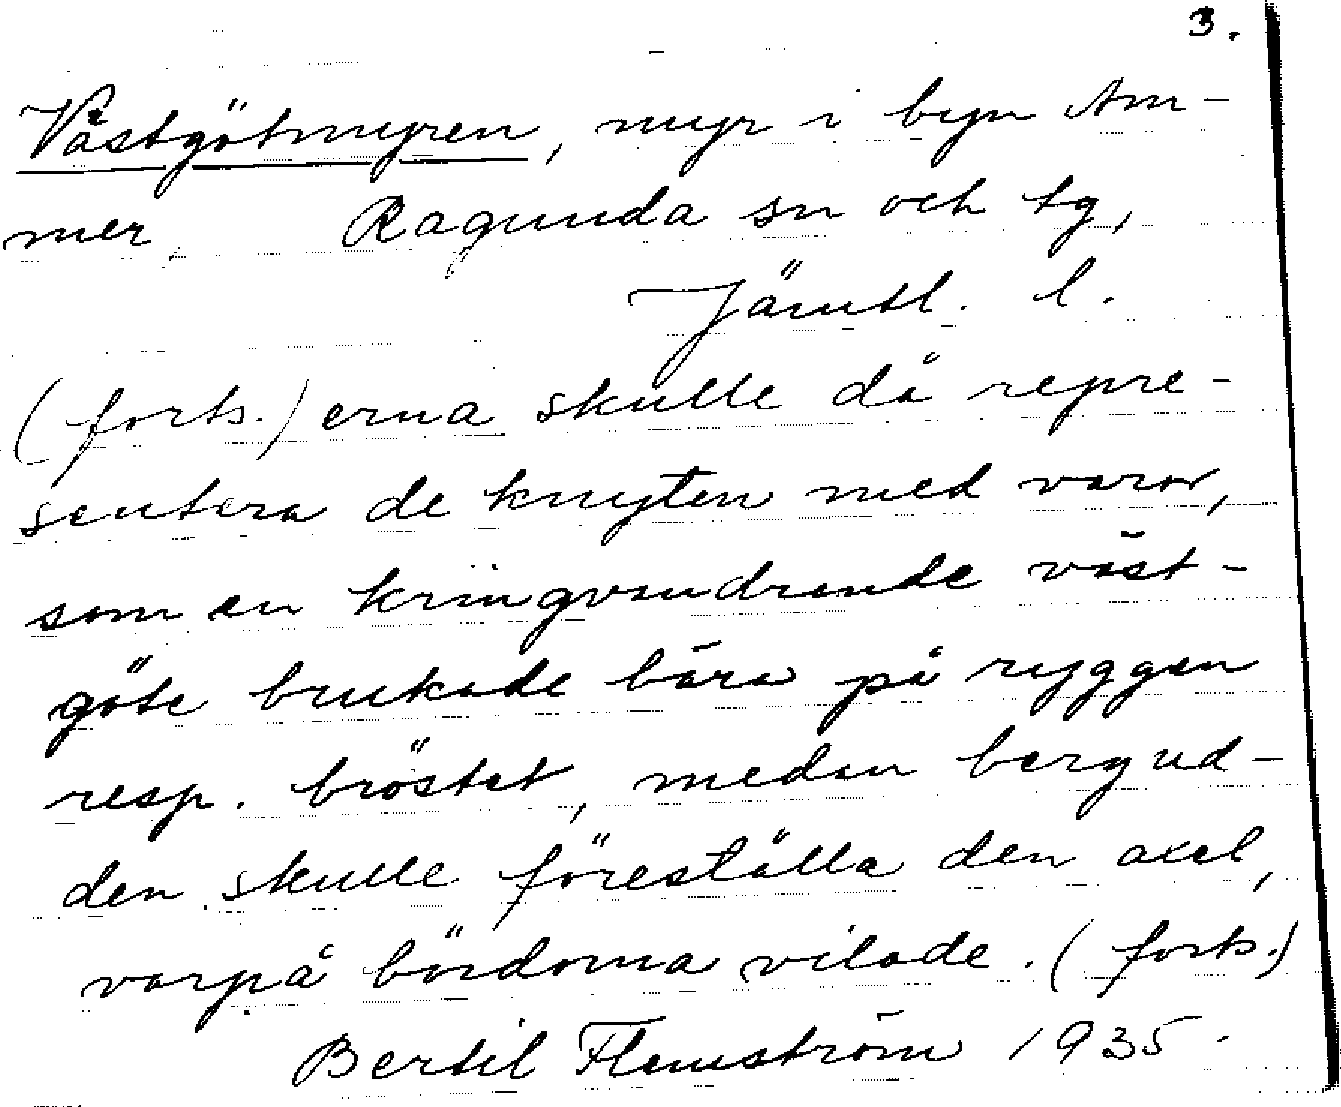 3.
Västgötmyren, myr i byn Am-
mer Ragunda sn och tg,
Jämtl. l.
(forts.) erna skulle då repre-
sentera de knyten med varor,
som en kringvandrande väst-
göte brukade bära på ryggen
resp. bröstet, medan bergud-
den skulle föreställa den axel,
varpå bördorna vilade. (forts.)
Bertil Flemström 1935.